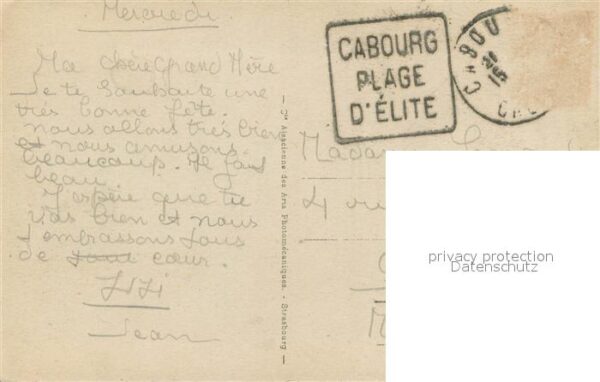 Mercredi
Ma chère Grand Mère
Je te souhaite une
très bonne fête.
nous allons très bien
et nous amusons
beaucoup. Il fait
beau.
J'espère que tu
vas bien et nous
t'embrassons tous
de tout cœur.
Jean
Cie Alsacienne des Arts Photomécaniques. - Strasbourg
CABOURG
PLAGE
D'ÉLITE
CABOU
15
Madame
4 rue
privacy protection
Datenschutz